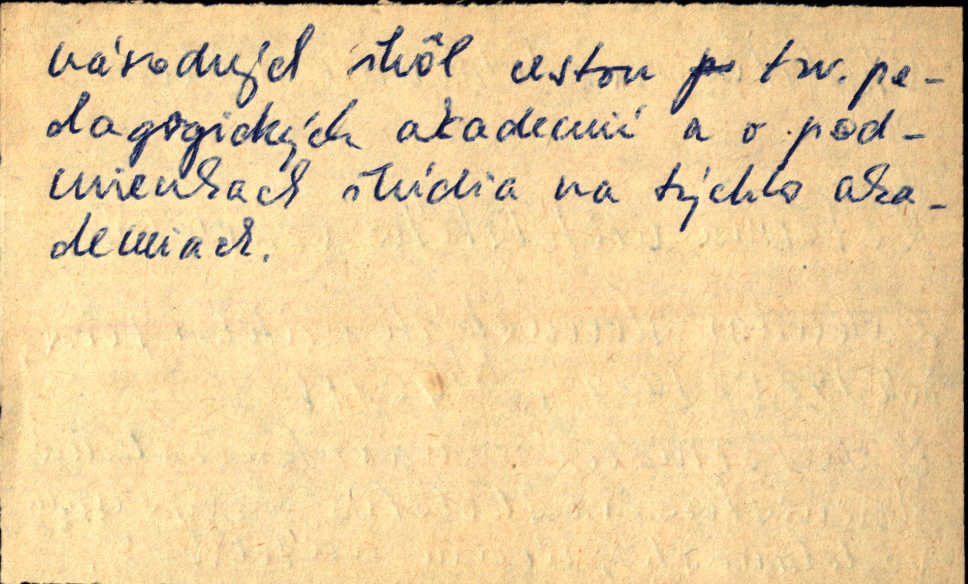 národných škôl cestou tzv. pe-
dagogických akademií a o pod-
mienkach štúdia na týchto aka-
demiach.